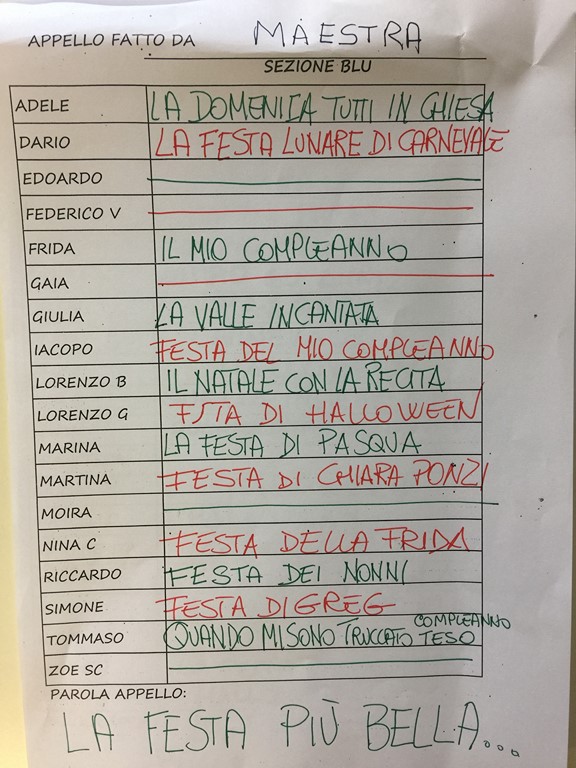 APPELLO FATTO DA MAESTRA
SEZIONE BLU
ADELE LA DOMENICA TUTTI IN CHIESA
DARIO LA FESTA LUNARE DI CARNEVALE
EDOARDO
FEDERICO V
FRIDA IL MIO COMPLEANNO
GAIA
GIULIA LA VALLE INCANTATA
IACOPO FESTA DEL MIO COMPLEANNO
LORENZO B IL NATALE CON LA RECITA
LORENZO G FSTA DI HALLOWEEN
MARINA LA FESTA DI PASQUA
MARTINA FESTA DI CHIARA PONZI
MOIRA
NINA C FESTA DELLA FRIDA
RICCARDO FESTA DEI NONNI
SIMONE FESTA DI GREG
TOMMASO QUANDO MI SONO TRUCCATO COMPLEANNO TESO
ZOE SC
PAROLA APPELLO:
LA FESTA PIÙ BELLA...